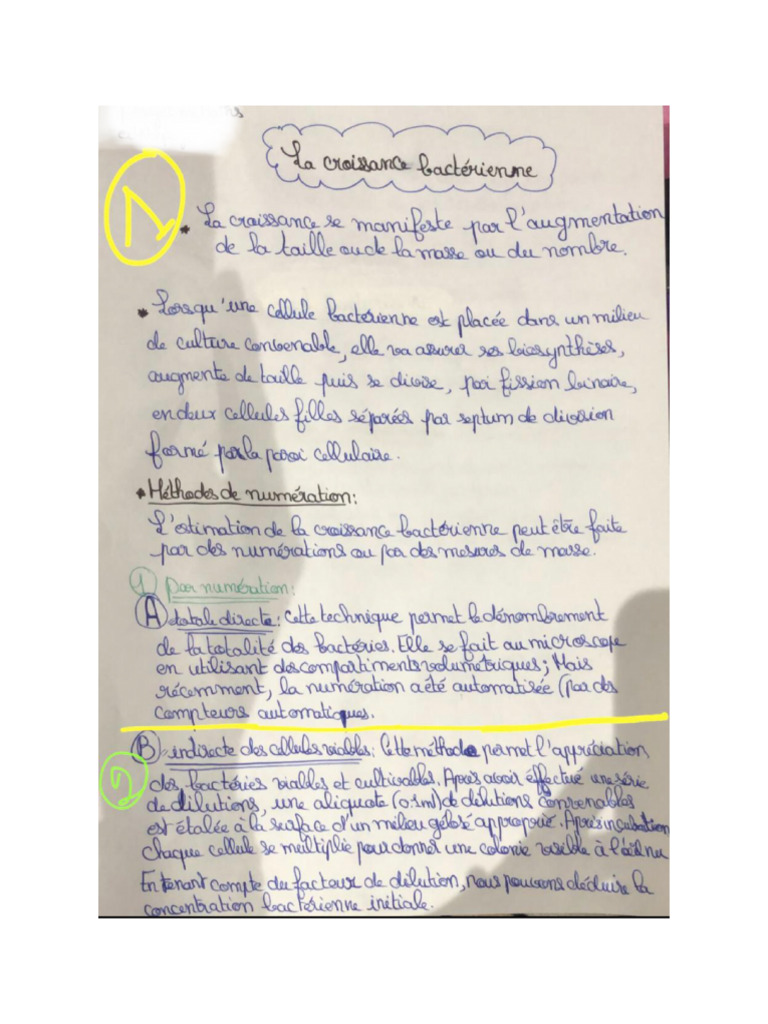 La croissance bactérienne
1
* La croissance se manifeste par l'augmentation
de la taille ou de la masse ou du nombre.
* Lorsqu'une cellule bactérienne est placée dans un milieu
de culture convenable, elle va assurer ses biosynthèses,
augmente de taille puis se divise, par fission binaire,
en deux cellules filles séparées par septum de division
formé par la paroi cellulaire.
* Méthodes de numération:
L'estimation de la croissance bactérienne peut être faite
par des numérations ou par des mesures de masse.
1) par numération:
A totale directe: Cette technique permet le dénombrement
de la totalité des bactéries. Elle se fait au microscope
en utilisant des compartiments volumétriques; Mais
récemment, la numération a été automatisée (par des
compteurs automatiques.
B indirecte des cellules viables: Cette méthode permet l'appréciation
2
des bactéries viables et cultivables. Après avoir effectué une série
de dilutions, une aliquote (0.1ml) de dilutions convenables
est étalée à la surface d'un milieu gélosé approprié. Après incubation
chaque cellule se multiplie pour donner une colonie visible à l'œil nu
En tenant compte du facteur de dilution, nous pouvons déduire la
concentration bactérienne initiale.